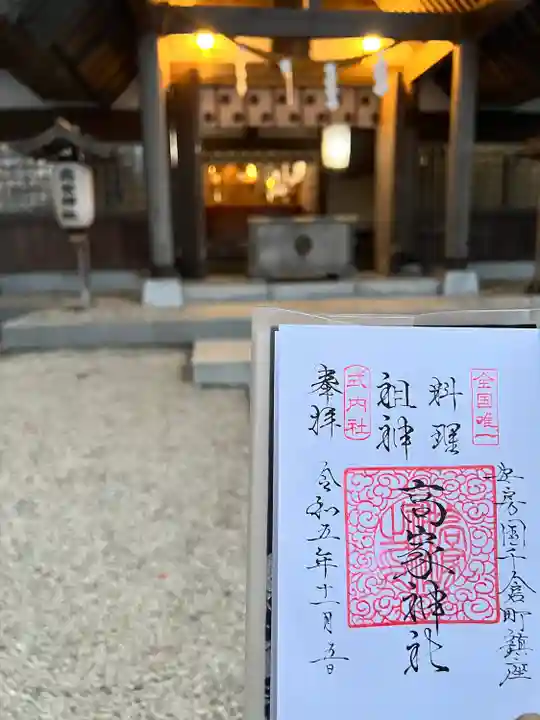 全国唯一
安房国千倉町鎮座
料理
祖神
高家神社
式内社
奉拝
令和五年十一月五日
高家神社